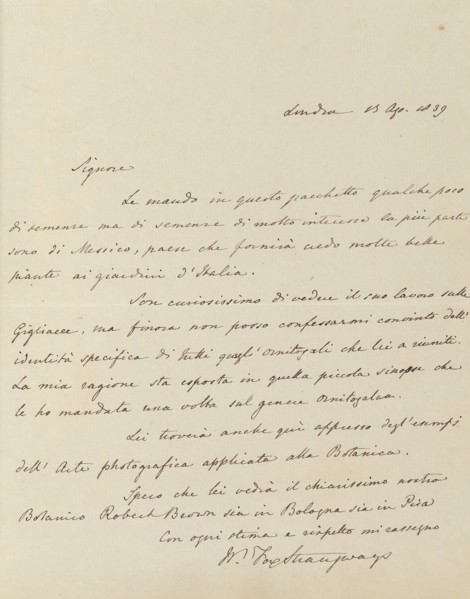 Londra 15 Ago. 1839
Signore
Le mando in questo pacchetto qualche poco
di semenze ma di semenze di molto interesse la più parte
sono di Messico, paese che fornirà credo molte belle
piante ai giardini d'Italia.
Son curiosissimo di vedere il suo lavoro sulle
Gigliacee, ma finora non posso confessarmi convinto dell'
identità specifica di tutti quegl' ornitogali che lei a riuniti.
La mia ragione sta esposta in quella piccola sinopse che
le ho mandata una volta sul genere
Lei troverà anche quì appresso degl' esempj
dell' Arte photografica applicata alla Botanica.
Spero che lei vedrà il chiarissimo nostro
Botanico Robert Brown sia in Bologna sia in Pisa
Con ogni stima e rispetto mi rassegno
Wm. Fox Strangways